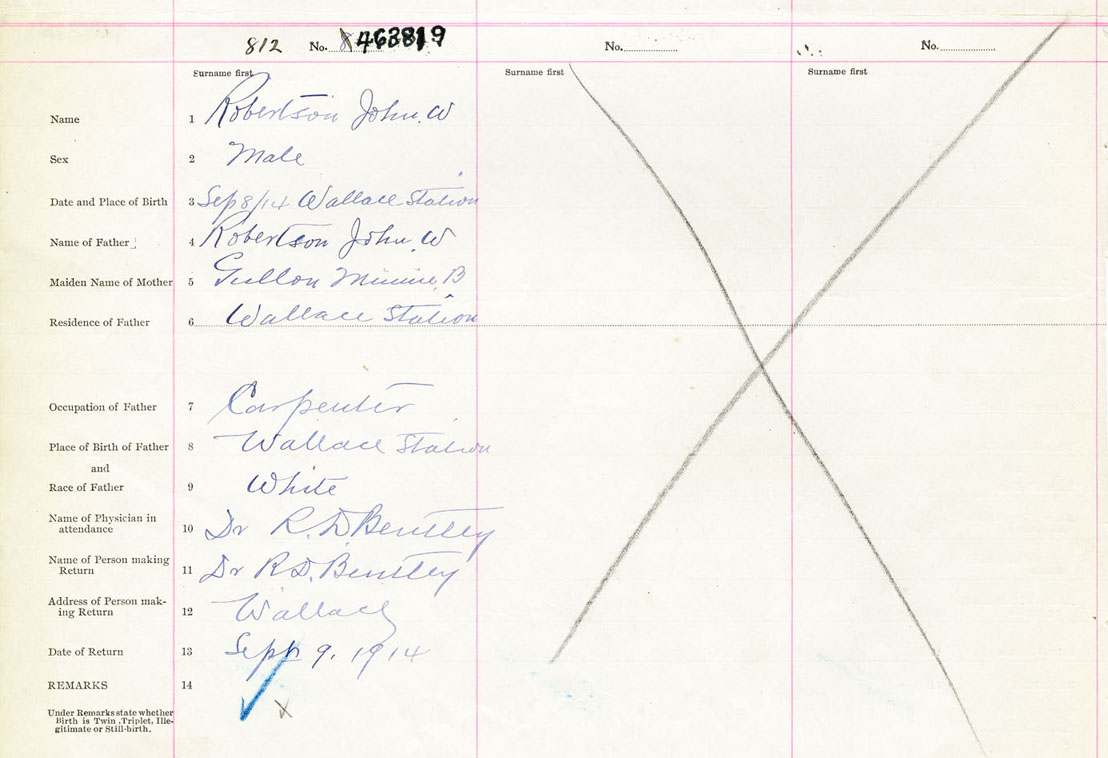 812 No. 463819 No. No.
Surname first Surname first Surname first
Name 1 Robertson John. W
Sex 2 Male
Date and Place of Birth 3 Sep 8/14 Wallace Station
Name of Father 4 Robertson John. W
Maiden Name of Mother 5 Minnie, B
Residence of Father 6 Wallace Station
Occupation of Father 7 Carpenter
Place of Birth of Father 8 Wallace Station
and
Race of Father 9 White
Name of Physician in
attendance 10 Dr R. D. Bentley
Name of Person making
Return 11 Dr R D. Bentley
Address of Person mak-
ing Return 12 Wallace
Date of Return 13 Sept 9. 1914
REMARKS 14
Under Remarks state whether
Birth is Twin, Triplet, Ille-
gitimate or Still-birth.